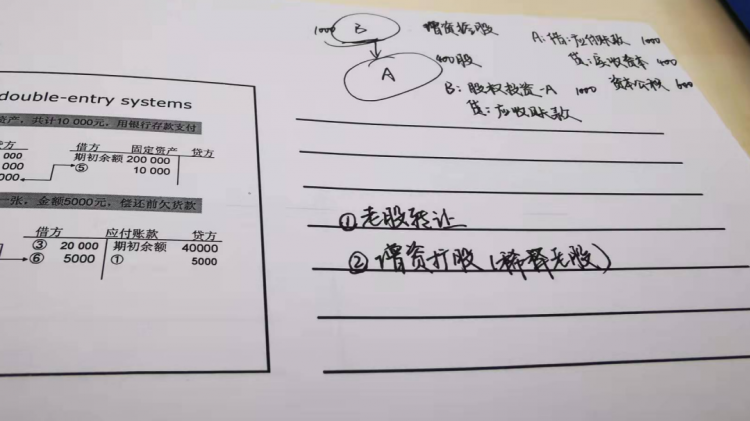 double-entry systems
资产，共计10 000元，用银行存款支付
方 借方 固定资产 贷方
000 期初余额 200 000
000 ⑤ 10 000
000
一张，金额5000元，偿还前欠货款
借方 应付账款 贷方
③ 20 000 期初余额 40000
⑥ 5000 ① 5000
1000 B 增资扩股 A：借：应付账款 1000
400股 贷：实收资本 400
A 资本公积 600
B：股权投资-A 1000
贷：应收账款
①老股转让
②增资扩股（稀释老股）